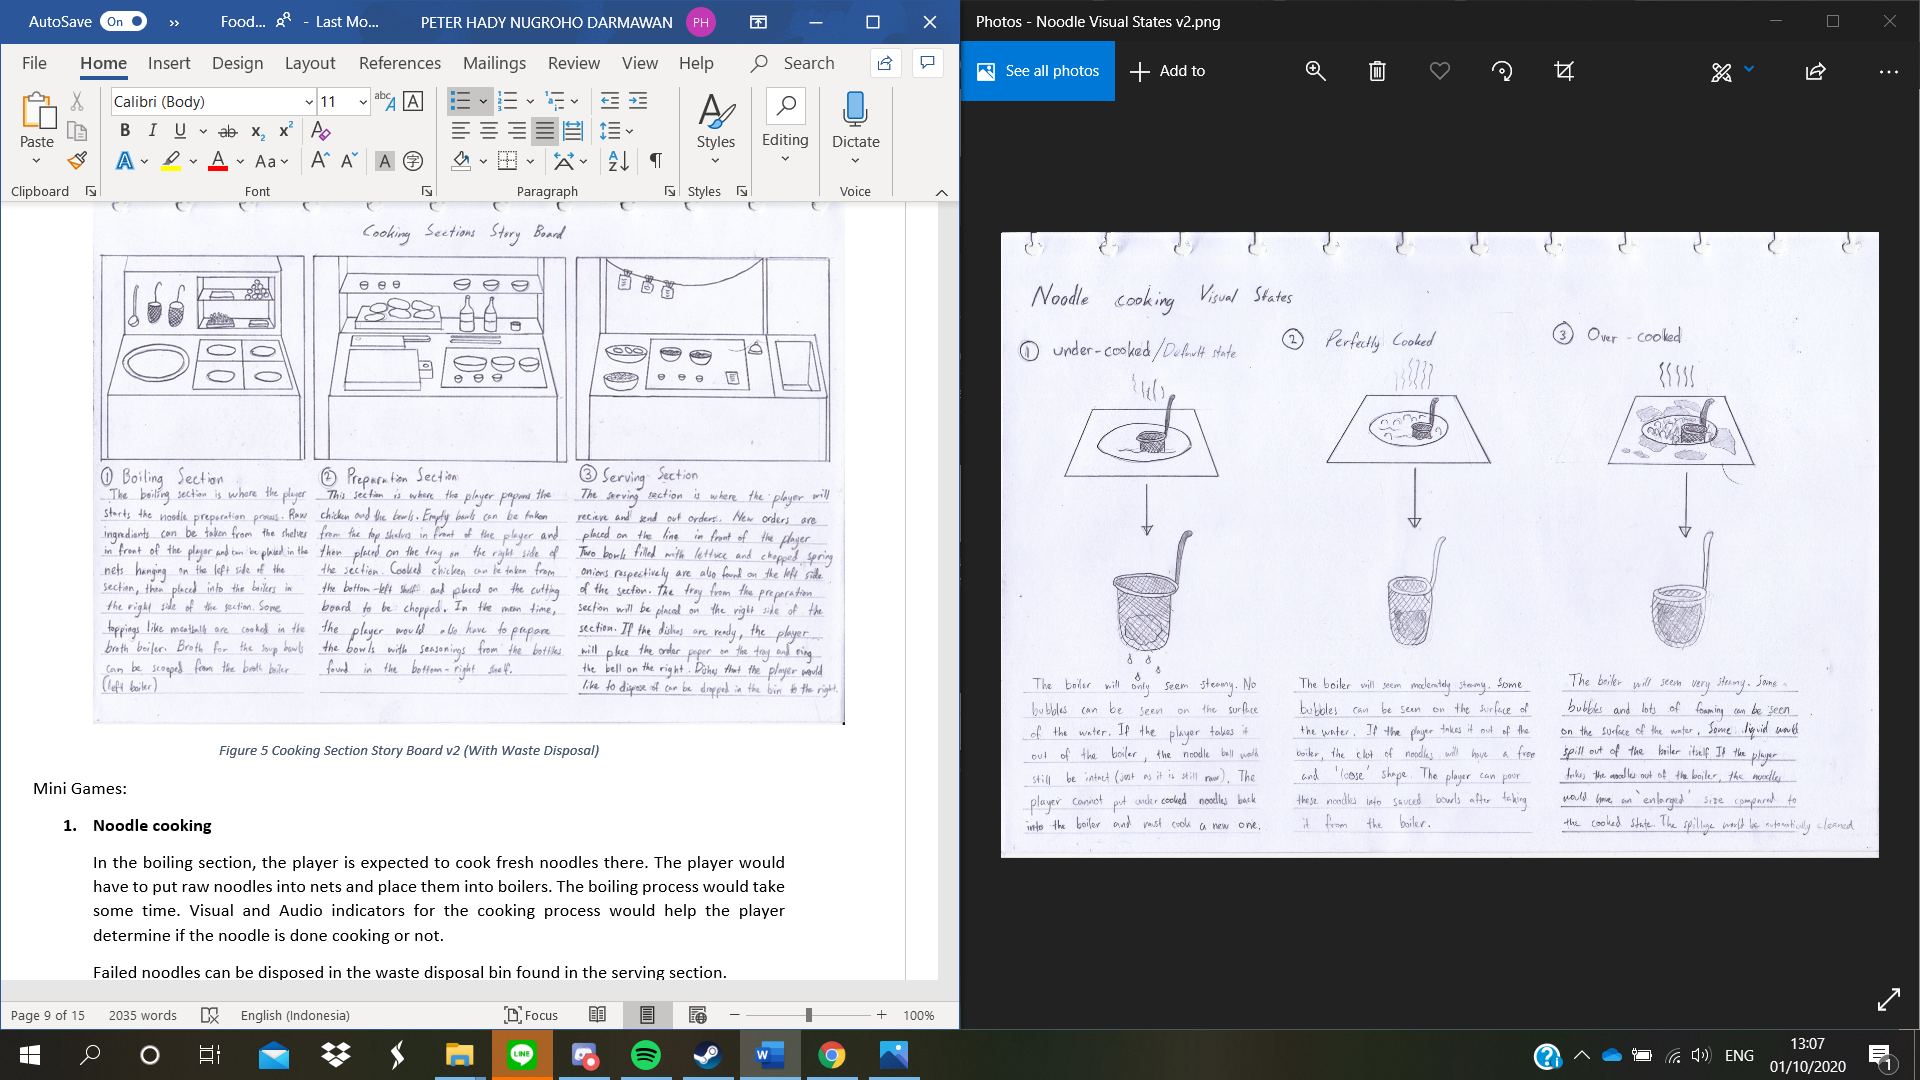 AutoSave
On
Food...
- Last Mo...
PETER HADY NUGROHO DARMAWAN
PH
File Home Insert Design Layout References Mailings Review View Help
Search
Calibri (Body)
11
Paste
Styles
Editing
Dictate
Clipboard
Font
Paragraph
Styles
Voice
Cooking Sections Story Board
① Boiling Section
The boiling section is where the player
starts the noodle preparation process. Raw
ingredients can be taken from the shelves
in front of the player and can be placed in the
nets hanging on the left side of the
section, then placed into the boilers in
the right side of the section. Some
toppings like meatballs are cooked in the
broth boiler. Broth for the soup bowls
can be scooped from the broth boiler
(left boiler)
② Preparation Section
This section is where the player prepares the
chicken and the bowls. Empty bowls can be taken
from the top shelves in front of the player and
then placed on the tray on the right side of
the section. Cooked chicken can be taken from
the bottom-left shelf and placed on the cutting
board to be chopped. In the mean time,
the player would also have to prepare
the bowls with seasonings from the bottles
found in the bottom-right shelf.
③ Serving Section
The serving section is where the player will
recieve and send out orders. New orders are
placed on the line in front of the player
Two bowls filled with lettuce and chopped spring
onions respectively are also found on the left side
of the section. The tray from the preparation
section will be placed on the right side of the
section. If the dishes are ready, the player
will place the order paper on the tray and ring
the bell on the right. Dishes that the player would
like to dispose of can be dropped in the bin to the right.
Figure 5 Cooking Section Story Board v2 (With Waste Disposal)
Mini Games:
1. Noodle cooking
In the boiling section, the player is expected to cook fresh noodles there. The player would
have to put raw noodles into nets and place them into boilers. The boiling process would take
some time. Visual and Audio indicators for the cooking process would help the player
determine if the noodle is done cooking or not.
Failed noodles can be disposed in the waste disposal bin found in the serving section.
Page 9 of 15
2035 words
English (Indonesia)
Focus
100%
Photos - Noodle Visual States v2.png
See all photos
Add to
Noodle cooking Visual States
① under-cooked/Default state
② Perfectly Cooked
③ Over-cooked
The boiler will only seem steamy. No
bubbles can be seen on the surface
of the water. If the player takes it
out of the boiler, the noodle ball would
still be intact (just as it is still raw). The
player cannot put undercooked noodles back
into the boiler and must cook a new one.
The boiler will seem moderately steamy. Some
bubbles can be seen on the surface of
the water. If the player takes it out of the
boiler, the clot of noodles will have a free
and 'loose' shape. The player can pour
these noodles into sauced bowls after taking
it from the boiler.
The boiler will seem very steamy. Some
bubbles and lots of foaming can be seen
on the surface of the water. Some liquid would
spill out of the boiler itself If the player
takes the noodles out of the boiler, the noodles
would have an 'enlarged' size compared to
the cooked state. The spillage would be automatically cleaned
LINE
ENG
13:07
01/10/2020
1